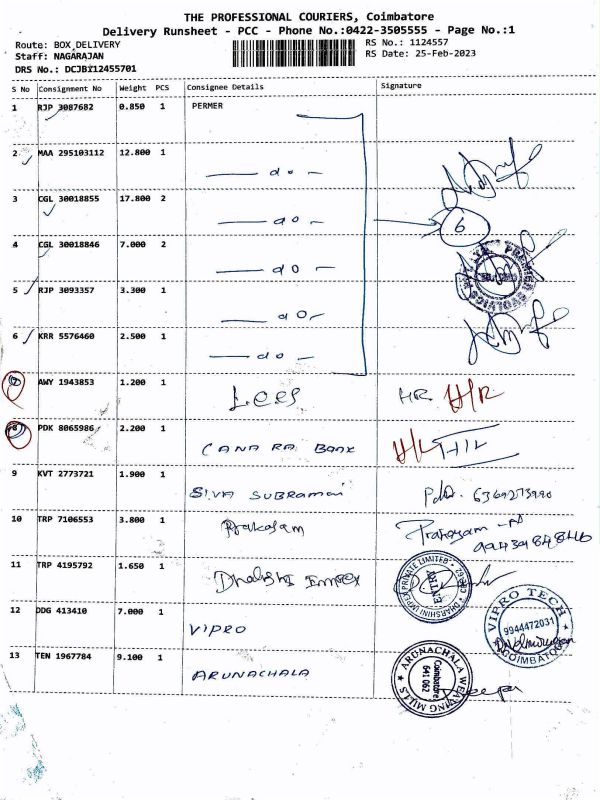 THE PROFESSIONAL COURIERS, Coimbatore
Delivery Runsheet - PCC - Phone No.:0422-3505555 - Page No.:1
Route: BOX DELIVERY
RS No.: 1124557
Staff: NAGARAJAN
RS Date: 25-Feb-2023
DRS No.: DCJB112455701
S No Consignment No Weight PCS Consignee Details Signature
1 RJP 3087682 0.850 1 PERMER
2 MAA 295103112 12.800 1
do
3 CGL 30018855 17.800 2
do 6
4 CGL 30018846 7.000 2
do
5 RJP 3093357 3.300 1
do
6 KRR 5576460 2.500 1
do
7 AWY 1943853 1.200 1
Lees HR H/R
8 PDK 8065986 2.200 1
CANARA BANK H/L H/L
9 KVT 2773721 1.900 1
SIVA SUBRAMANI
10 TRP 7106553 3.800 1
Prakasam
9943984846
11 TRP 4195792 1.650 1
Dharshini Impex
DHARSHINI IMPEX PRIVATE LIMITED
12 DDG 413410 7.000 1
VIPRO
VIPRO TECH
9944472031
COIMBATORE
13 TEN 1967784 9.100 1
ARUNACHALA
ARUNACHALA WEAVING MILLS
Coimbatore
641 062